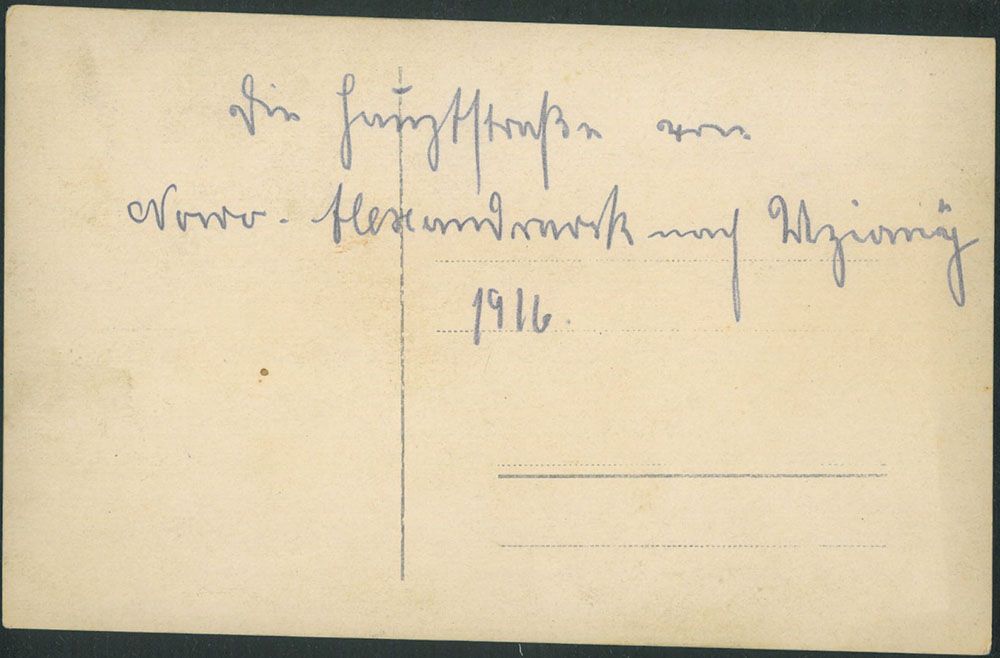 Die Hauptstraße von
Nowo-Alexandrowsk nach Uziany
1916.